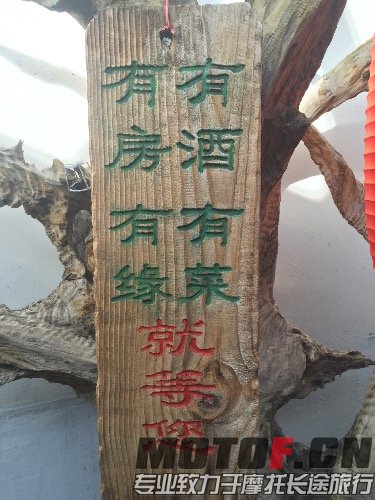 有酒有菜
有房有缘
就等你
MOTOF.CN
专业致力于摩托长途旅行